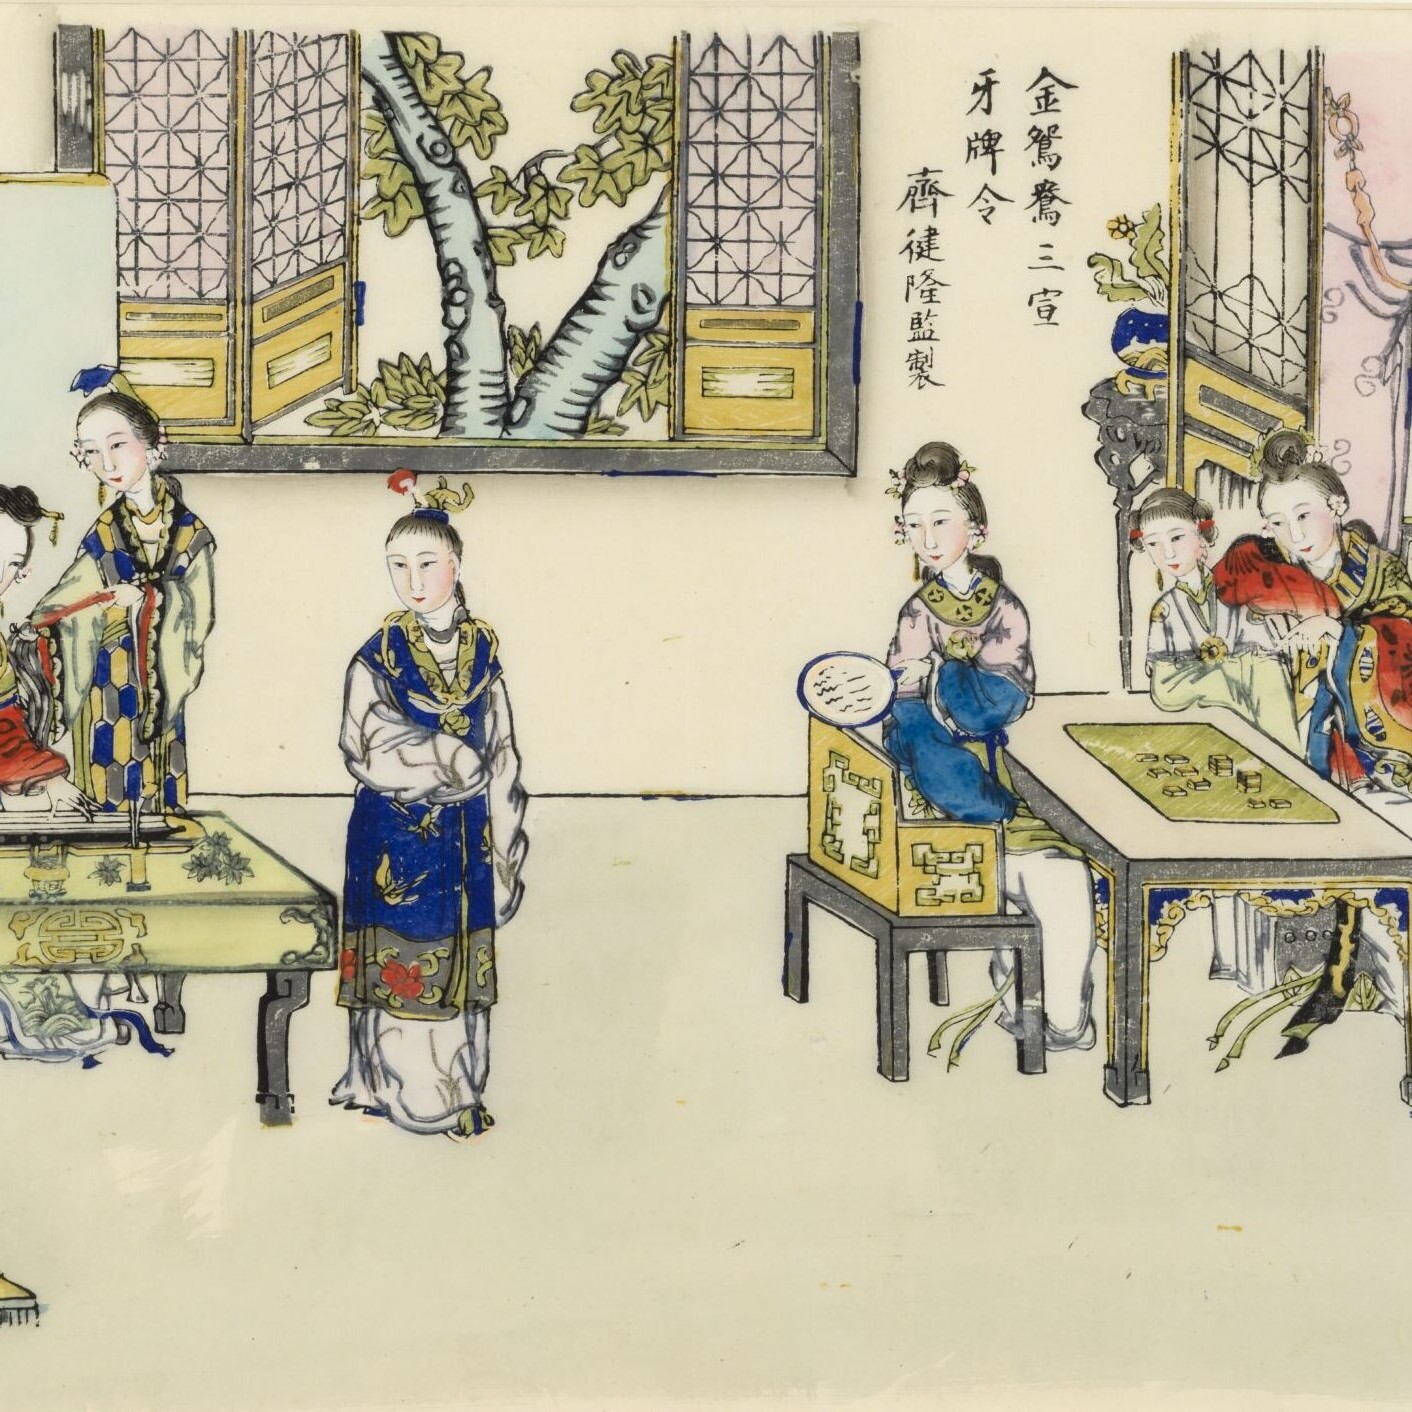 金鴛鴦三宣
牙牌令
齊健隆監製